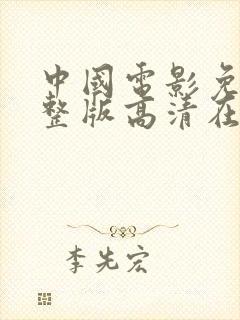 中國電影免
整版高清在
李先宏